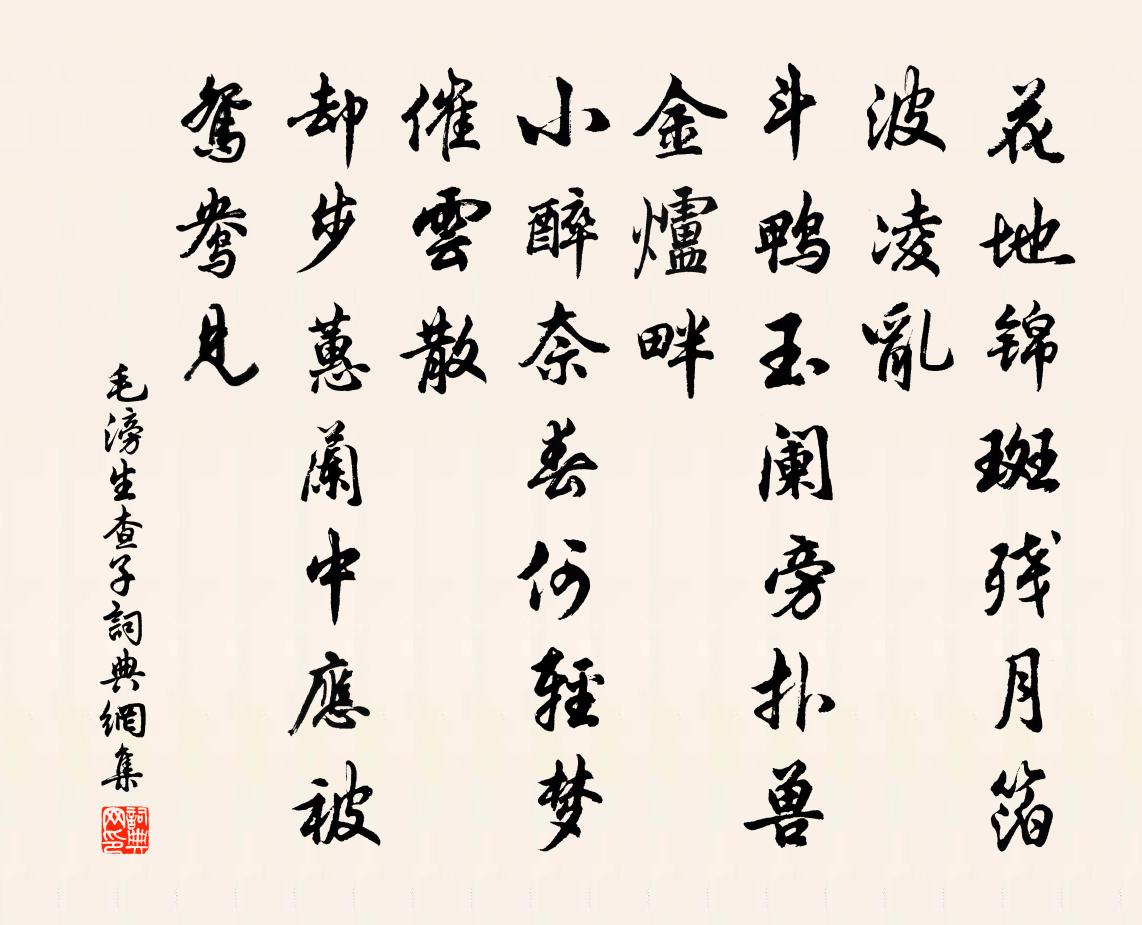 花地锦斑残月箔
波凌亂
斗鸭玉阑旁扑兽
金爐畔
小醉奈春何輕梦
催雲散
却步蕙蘭中應被
鸳鸯見
毛滂生查子詞典網集
詞典网印